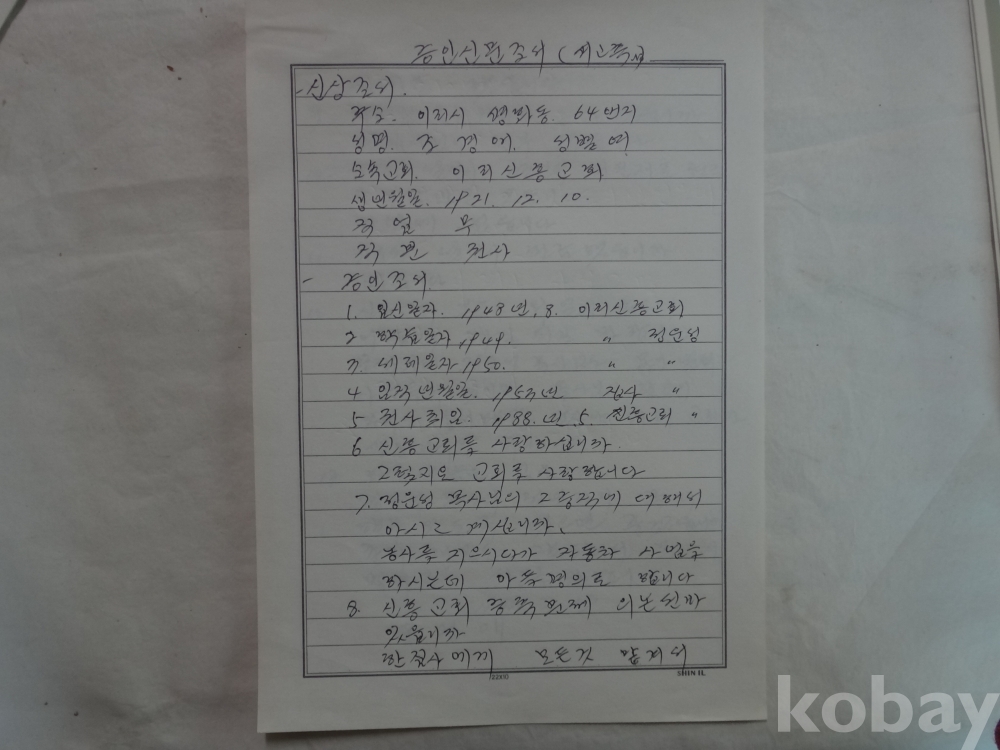 증인신문조서 (
- 신상조서.
주소. 이리시 동. 64번지
성명. 조 경 애. 성별 여
소속교회. 이리신흥교회
생년월일. 1921. 12. 10.
직 업 무
직 권사
- 증인조서
1. 일자. 1948년. 8. 이리신흥교회
2 학습일자 1949. 〃 정운성
3. 세례일자 1950. 〃 〃
4 임직년월일. 집사 〃
5 권사취임. 1988.년. 5. 신흥교회 〃
6 신흥교회를 사랑하십니까.
교회를 사랑합니다
7. 정운성 목사님의 대해서
아시고 계십니까.
농사를 지으시다가 자동차 사업을
하시는데 명의로 합니다
8. 신흥교회 의논한바
있읍니까
한 집사에게 모든것 맡겨서
22x10
SHIN IL
kobay